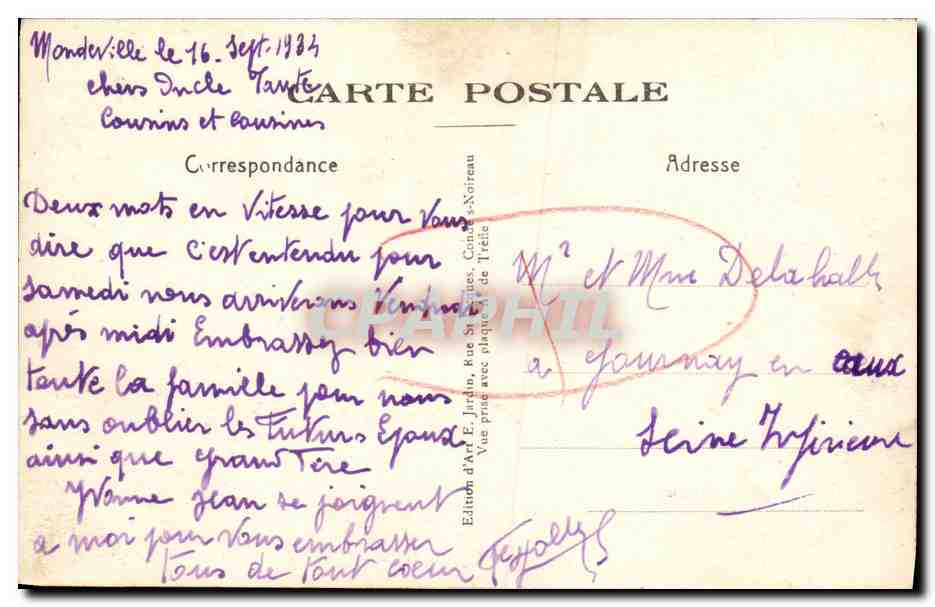 Mondeville le 16. Sept. 1934
chers Oncle Tante
Cousins et Cousines
CARTE POSTALE
Correspondance
Deux mots en vitesse pour vous
dire que c'est entendu pour
samedi nous arriverons Vendredi
après midi Embrassez bien
toute la famille pour nous
sans oublier les Futurs Epoux
ainsi que Grand Père
Yvonne Jean se joignent
a moi pour vous embrasser
tous de tout coeur
Edition d'Art E. Jardin, Rue St Jacques, Condé-s-Noireau
Vue prise avec plaque As de Trèfle
Adresse
Mr et Mme Delahalle
a Gournay en caux
Seine Inferieure
CPAPHIL